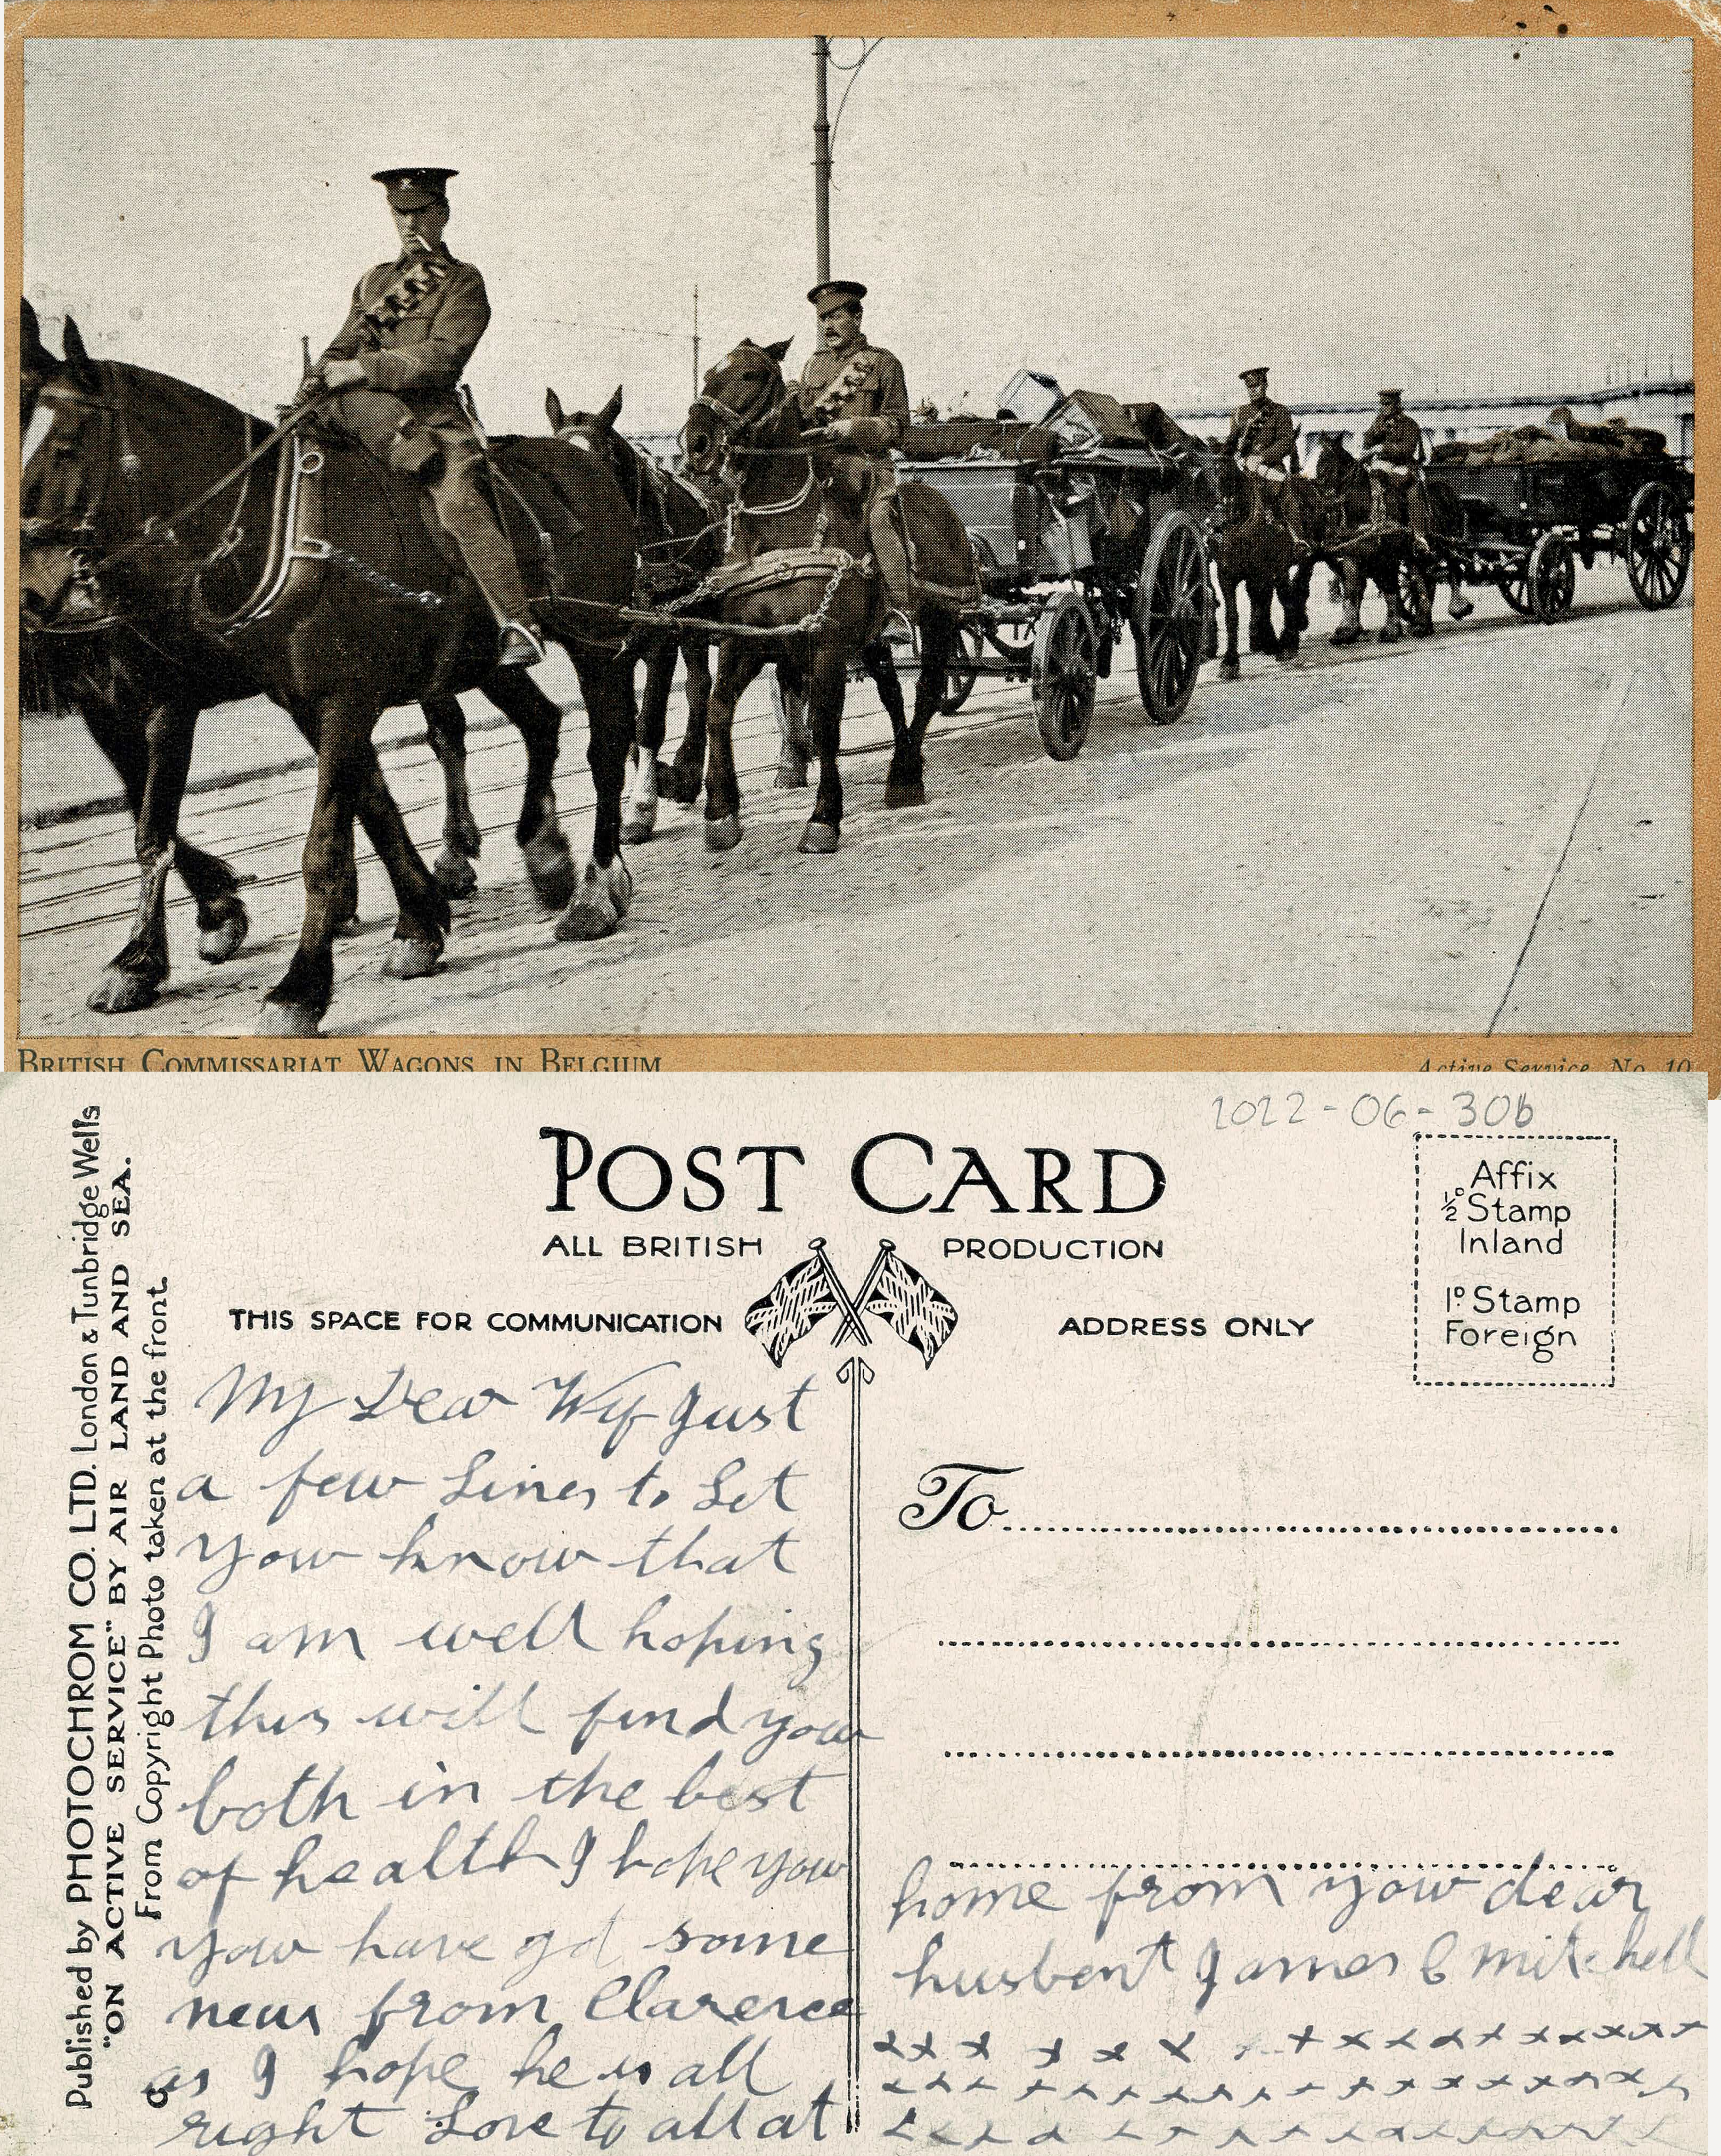 BRITISH COMMISSARIAT WAGONS IN BELGIUM
Active Service. No. 10
2022-06-30b
POST CARD
ALL BRITISH PRODUCTION
THIS SPACE FOR COMMUNICATION
ADDRESS ONLY
Affix
½ᴰ Stamp
Inland
1ᴰ Stamp
Foreign
Published by PHOTOCHROM CO. LTD. London & Tunbridge Wells
"ON ACTIVE SERVICE" BY AIR LAND AND SEA.
From Copyright Photo taken at the front.
My Dear Wif Just
a few Lines to Let
yow know that
I am well hoping
this will find yow
both in the best
of health I hope yow
yow have got some
news from Clarence
as I hope he is all
right Love to all at
To
home from yow dear
husbent James C Mitchell
x x x x x x x + x x x x x x x x x x
x x x x x x x x x x x x x x x x x x
x x x x x x x x x x x x x x x x